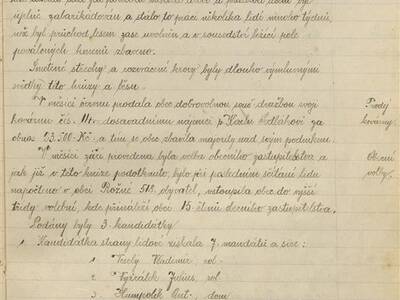 úplně zabarikadován a stálo to práci několika lidí mnoho týdnů,
než byl průchod lesem zase uvolněn a v sousedství ležící pole
povalených kmenů zbaveno.
Smetené střechy a rozvrácené krovy byly dlouho výmluvnými
svědky této hrůzy a běsu.
V měsíci červnu prodala obec dobrovolnou dražbou svoji
kovárnu čís. 111. dosavadnímu nájemci p. Karlu Sedlákovi za
obnos 13.700 Kč a tím se obec zbavila majority nad svým podnikem.
V měsíci září provedena byla volba obecního zastupitelstva a
jak již v této knize podotknuto, bylo při posledním sčítání lidu
napočteno v obci Rožné 519 obyvatel, vstoupila obec do vyšší
třídy volební, kde přináleží obci 15 členů obecního zastupitelstva.
Podány byly 3 kandidátky
1. Kandidátka strany lidové získala 7 mandátů a sice:
1 Veselý Vladimír, rol.
2 Vyskočil Julius, rol.
3 Humpolík Ant. dom.
Prodej
kovárny.
Obecní
volby.